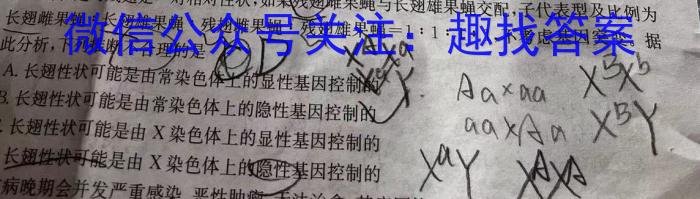 一对相对性状，如果残翅雌果蝇与长翅雄果蝇交配，子代表型及比例为
长翅雌果蝇：长翅雄果蝇：残翅雌果蝇：残翅雄果蝇=1：1：
微信公众号关注：趣找答案
据
此分析，下
A. 长翅性状可能是由常染色体上的显性基因控制的
B. 长翅性状可能是由常染色体上的隐性基因控制的
长翅性状可能是由 X 染色体上的显性基因控制的
长翅性状可能是由 X 染色体上的隐性基因控制的
病晚期会并发严重感染、恶性肿瘤
Aa×aa
aa×Aa
XBXb
XBY
XaY
XAXA